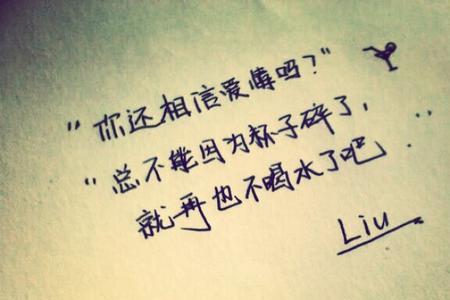 "你还相信爱情吗？"
"总不能因为杯子碎了，
就再也不喝水了吧
Liu